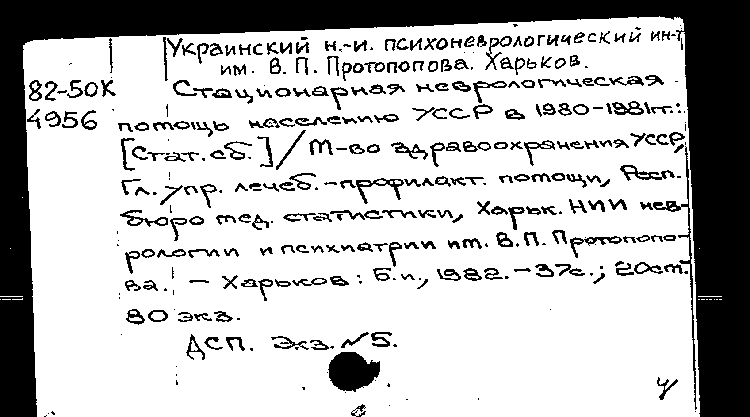 Украинский н.-и. психоневрологический ин-т
им. В. П. Протопопова. Харьков.
82-50К Стационарная неврологическая
4956 помощь населению УССР в 1980-1981гг.:
[Стат. сб.] / М-во здравоохранения УССР,
Гл. упр. лечеб.-профилакт. помощи, Респ.
бюро мед. статистики, Харьк. НИИ нев-
рологии и психиатрии им. В. П. Протопопо-
ва. - Харьков: Б. и., 1982. - 37с.; 20см.
80 экз.
ДСП. Экз. №5.